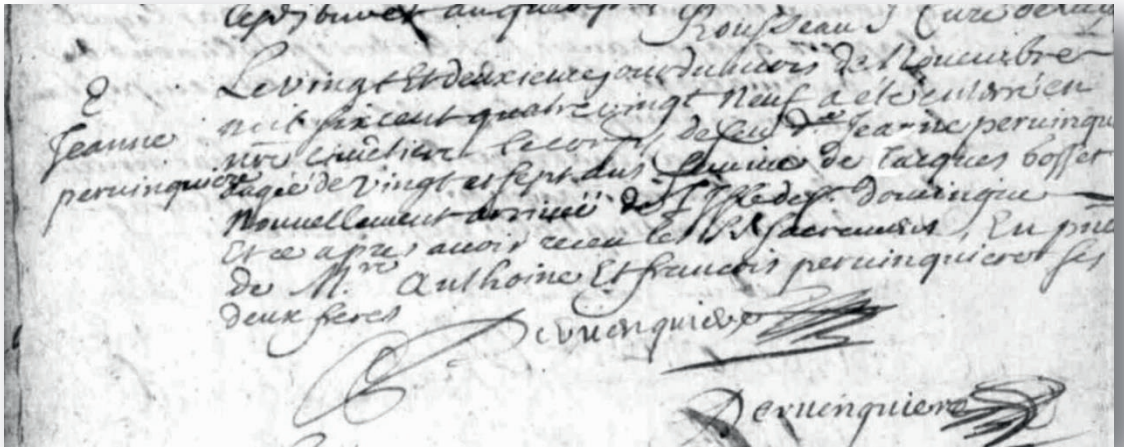 Rousseau Curé de
Le vingt et deuxieme jour du mois de Nouembre
mil six cent quatre vingt neuf a été enterré en
nre cimetiere le corps de feu d.lle Jeanne peruinqu
agée de vingt et sept ans femme de Jacques bosset
nouuellement arriuée de l'Isle de s.t domingue
Et ce apres auoir receu les s.ts sacremens, En pñce
de M.re Anthoine Et francois peruinquieres ses
deux freres
Jeanne
peruinquiere
Peruinquiere
Peruinquiere